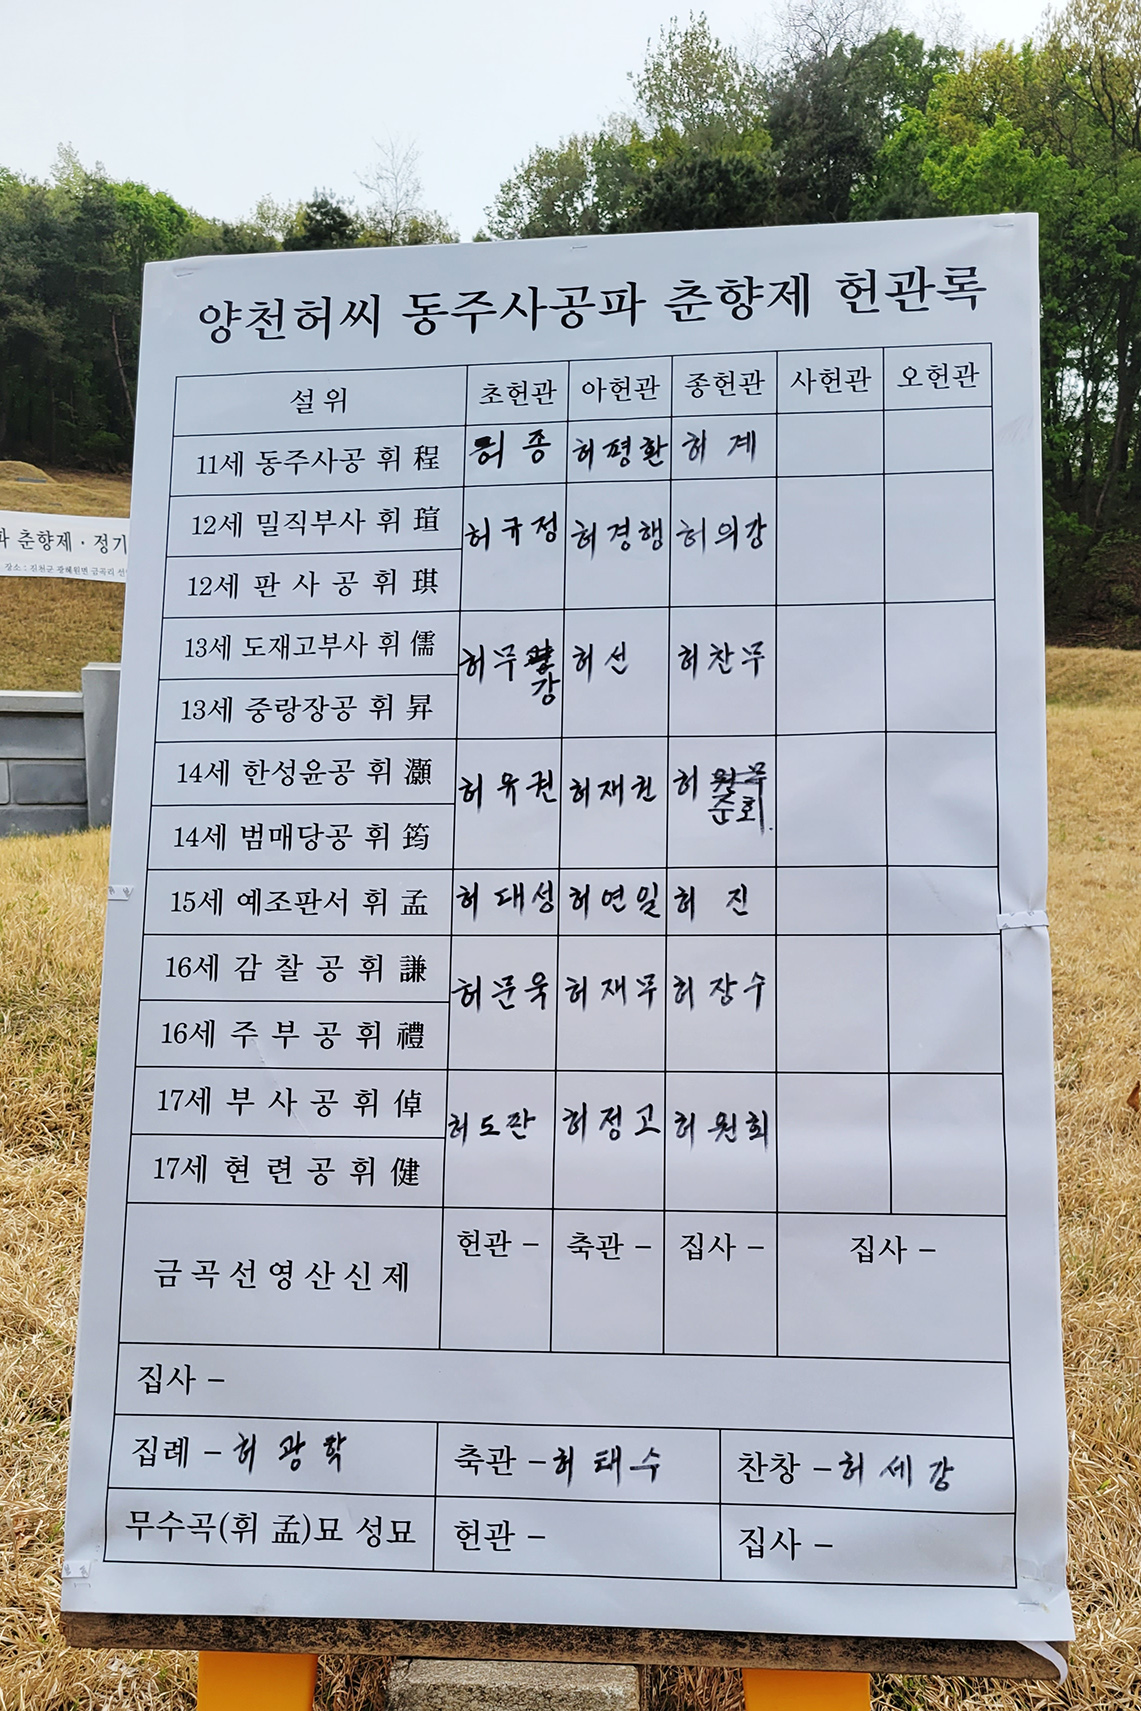 양천허씨 동주사공파 춘향제 헌관록
설 위 초헌관 아헌관 종헌관 사헌관 오헌관
11세 동주사공 휘 程 허 종 허평환 허 계
12세 밀직부사 휘 瑄 허규정 허경행 허의강
12세 판 사 공 휘 琪
13세 도재고부사 휘 儒 허무강 허선 허찬무
13세 중랑장공 휘 昇
14세 한성윤공 휘 灝 허유권 허재권 허준회
14세 범매당공 휘 筠
15세 예조판서 휘 孟 허대성 허연일 허 진
16세 감 찰 공 휘 謙 허문욱 허재무 허장수
16세 주 부 공 휘 禮
17세 부 사 공 휘 倬 허도관 허정고 허원회
17세 현 련 공 휘 健
금곡선영산신제 헌관 - 축관 - 집사 - 집사 -
집사 -
집례 - 허광학 축관 - 허태수 찬창 - 허세강
무수곡(휘 孟)묘 성묘 헌관 - 집사 -
파 춘향제 · 정기
장소 : 진천군 광혜원면 금곡리 선영